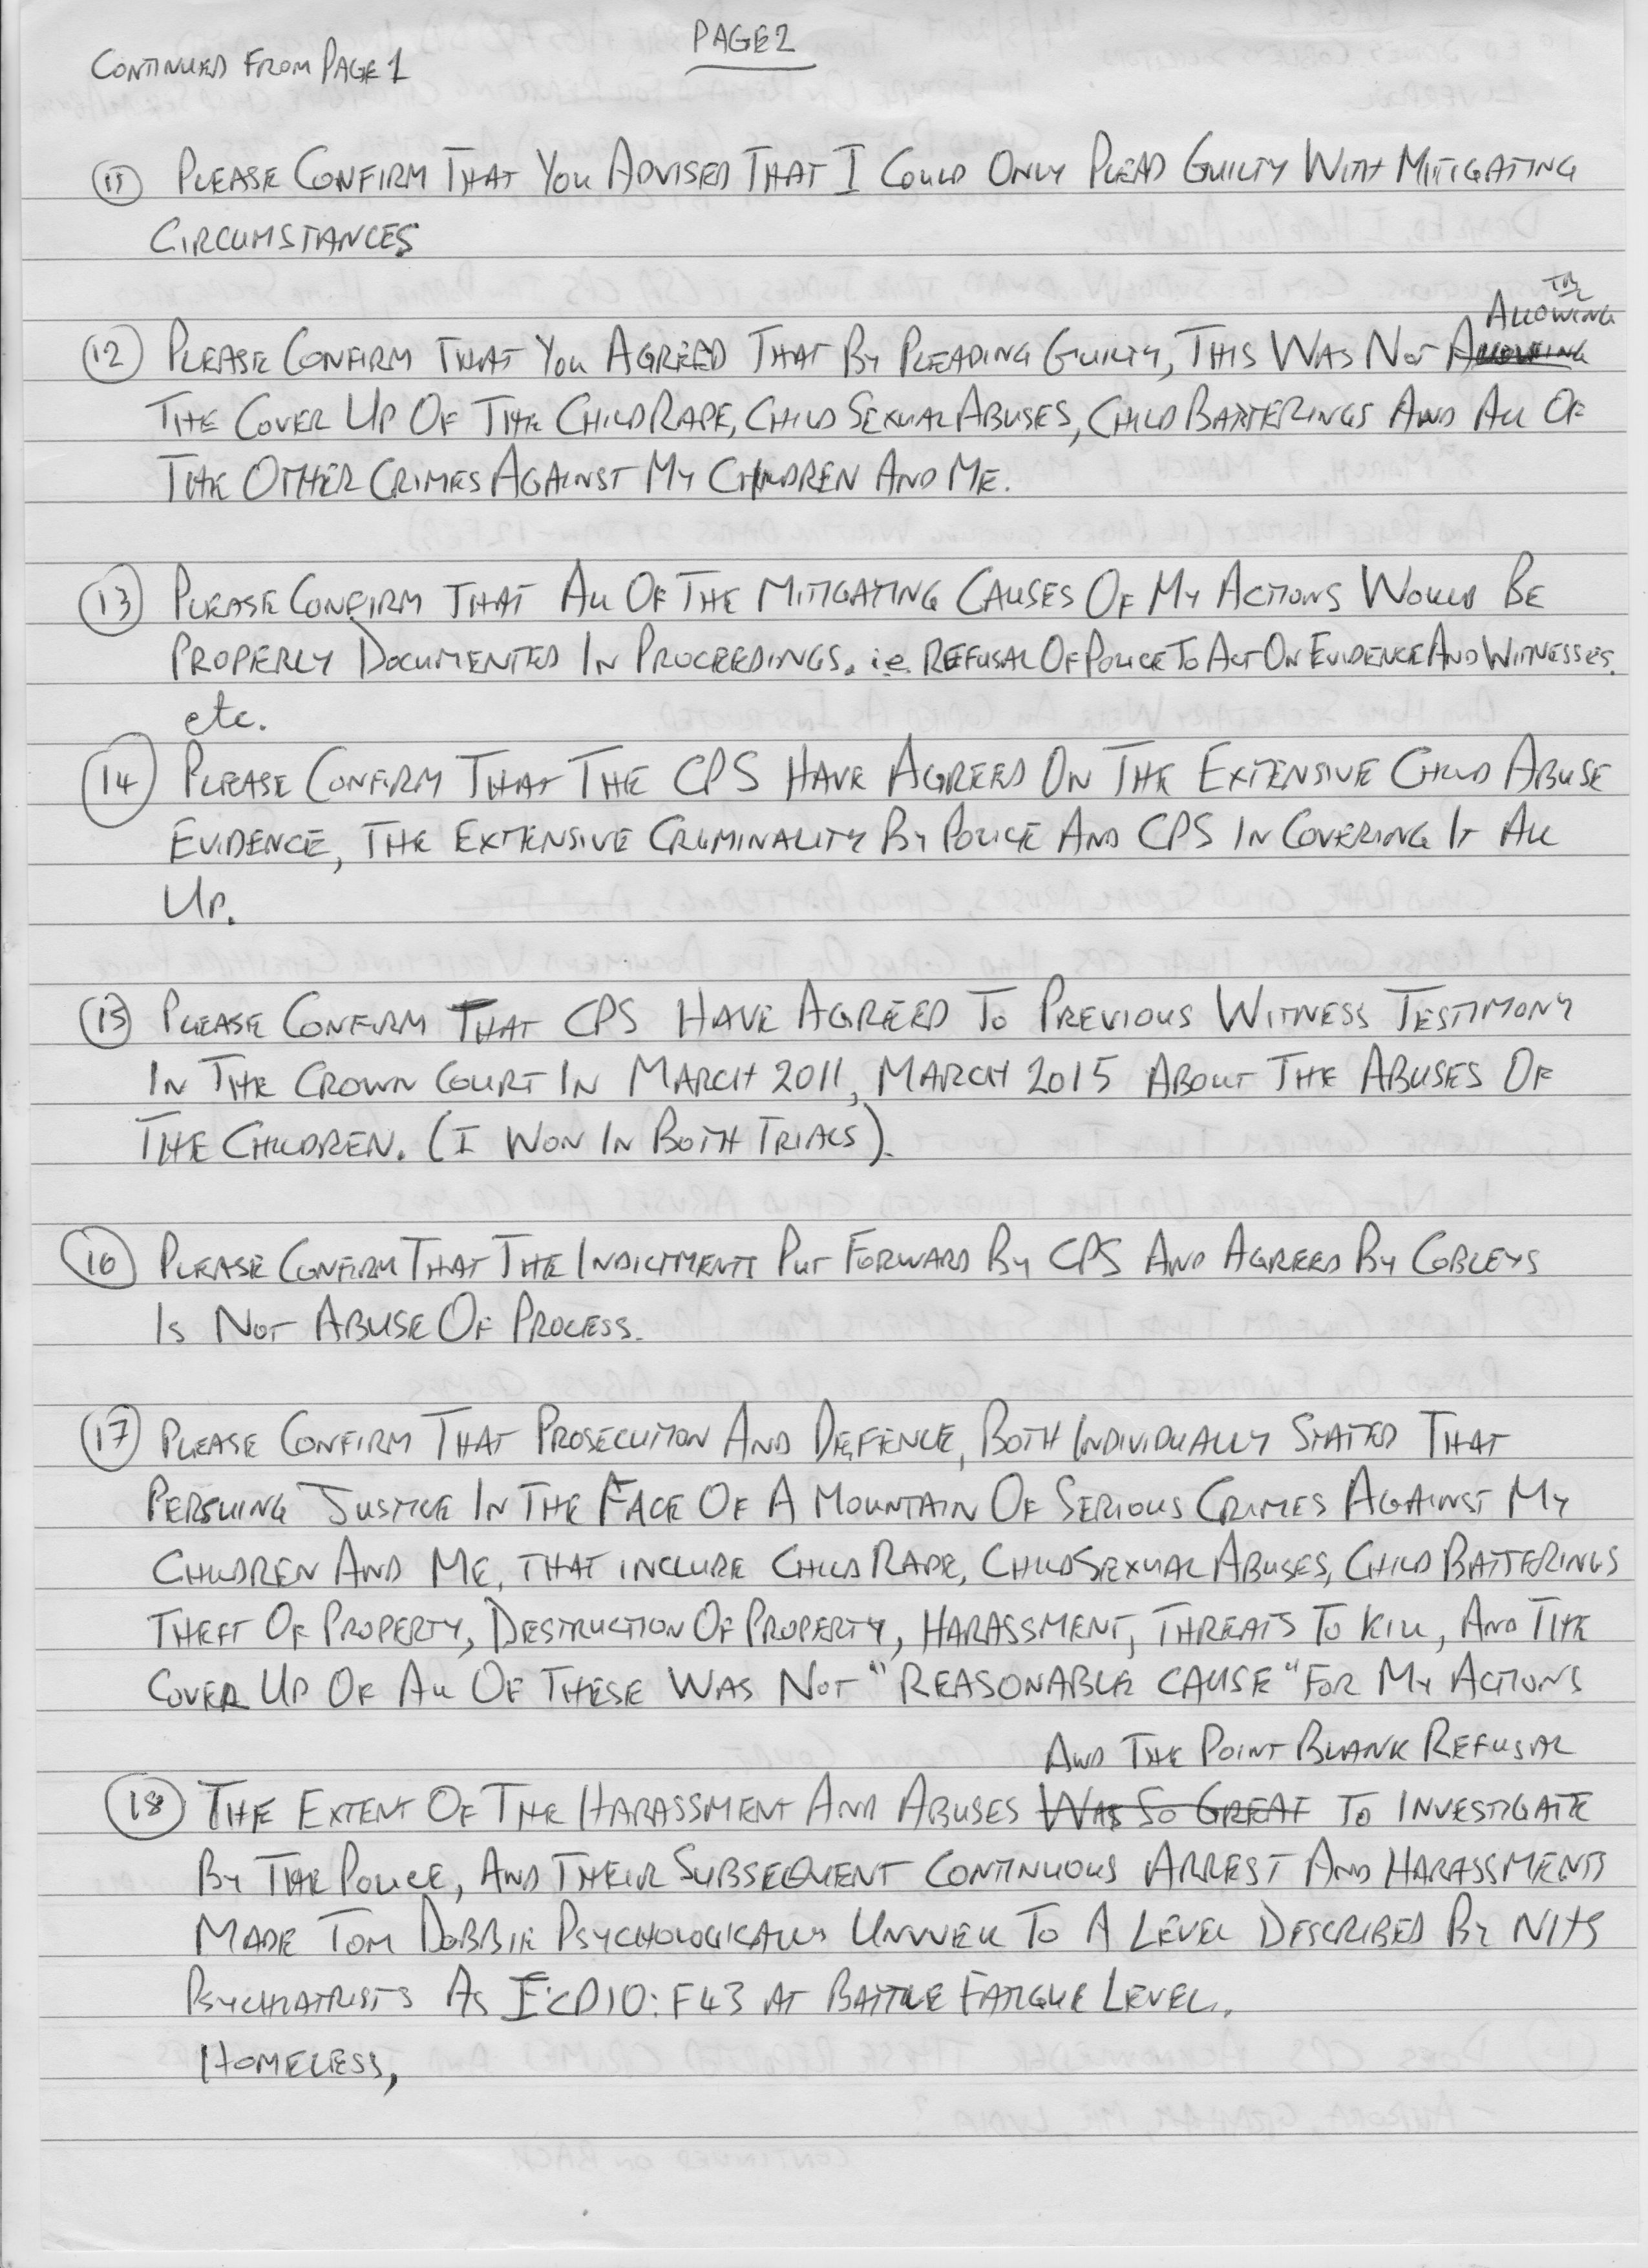 PAGE 2
CONTINUED FROM PAGE 1
11 PLEASE CONFIRM THAT YOU ADVISED THAT I COULD ONLY PLEAD GUILTY WITH MITIGATING
CIRCUMSTANCES
TD
ALLOWING
12 PLEASE CONFIRM THAT YOU AGREED THAT BY PLEADING GUILTY, THIS WAS NOT ALLOWING
THE COVER UP OF THE CHILD RAPE, CHILD SEXUAL ABUSES, CHILD BATTERINGS AND ALL OF
THE OTHER CRIMES AGAINST MY CHILDREN AND ME.
13 PLEASE CONFIRM THAT ALL OF THE MITIGATING CAUSES OF MY ACTIONS WOULD BE
PROPERLY DOCUMENTED IN PROCEEDINGS. i.e. REFUSAL OF POLICE TO ACT ON EVIDENCE AND WITNESSES.
etc.
14 PLEASE CONFIRM THAT THE CPS HAVE AGREED ON THE EXTENSIVE CHILD ABUSE
EVIDENCE, THE EXTENSIVE CRIMINALITY BY POLICE AND CPS IN COVERING IT ALL
UP.
15 PLEASE CONFIRM THAT CPS HAVE AGREED TO PREVIOUS WITNESS TESTIMONY
IN THE CROWN COURT IN MARCH 2011, MARCH 2015 ABOUT THE ABUSES OF
THE CHILDREN. (I WON IN BOTH TRIALS).
16 PLEASE CONFIRM THAT THE INDICTMENTS PUT FORWARD BY CPS AND AGREED BY COBLEYS
IS NOT ABUSE OF PROCESS.
17 PLEASE CONFIRM THAT PROSECUTION AND DEFENCE, BOTH INDIVIDUALLY STATED THAT
PERSUING JUSTICE IN THE FACE OF A MOUNTAIN OF SERIOUS CRIMES AGAINST MY
CHILDREN AND ME, THAT INCLUDE CHILD RAPE, CHILD SEXUAL ABUSES, CHILD BATTERINGS
THEFT OF PROPERTY, DESTRUCTION OF PROPERTY, HARASSMENT, THREATS TO KILL, AND THE
COVER UP OF ALL OF THESE WAS NOT "REASONABLE CAUSE" FOR MY ACTIONS
AND THE POINT BLANK REFUSAL
18 THE EXTENT OF THE HARASSMENT AND ABUSES WAS SO GREAT TO INVESTIGATE
BY THE POLICE, AND THEIR SUBSEQUENT CONTINUOUS ARREST AND HARASSMENTS
MADE TOM DOBBIE PSYCHOLOGICALLY UNWELL TO A LEVEL DESCRIBED BY NHS
PSYCHIATRISTS AS ICD10: F43 AT BATTLE FATIGUE LEVEL.
HOMELESS,